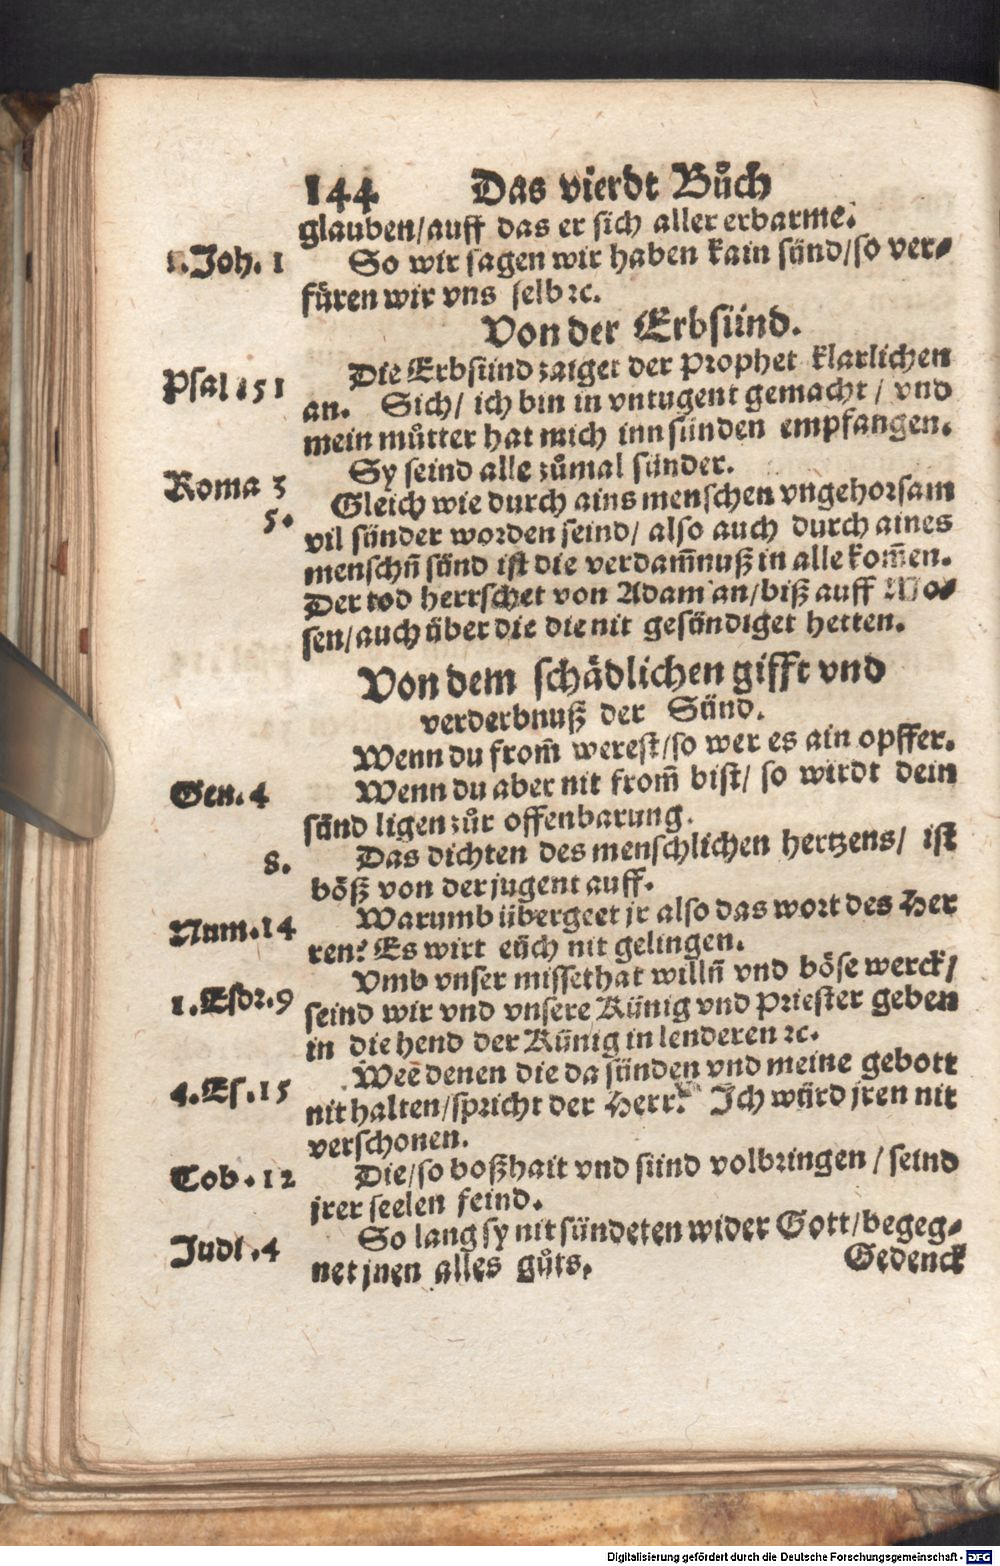 144 Das vierdt Bůch
glauben/auff das er sich aller erbarme.
1.Joh. 1 So wir sagen wir haben kain sünd/so ver-
füren wir vns selb ꝛc.
Von der Erbsünd.
Psal. 151 Die Erbsünd zaiget der Prophet klarlichen
an. Sich/ ich bin in vntugent gemacht / vnd
mein můtter hat mich inn sünden empfangen.
Roma 3 Sy seind alle zůmal sünder.
5. Gleich wie durch ains menschen vngehorsam
vil sünder worden seind/ also auch durch aines
menschñ sünd ist die verdam̃nuß in alle kom̃en.
Der tod herrschet von Adam an/biß auff Mo-
sen/auch über die die nit gesündiget hetten.
Von dem schädlichen gifft vnd
verderbnuß der Sünd.
Wenn du from̃ werest/so wer es ain opffer.
Gen. 4 Wenn du aber nit from̃ bist/ so wirdt dein
sünd ligen zůr offenbarung.
8. Das dichten des menschlichen hertzens/ ist
böß von der jugent auff.
Num.14 Warumb übergeet jr also das wort des Her
ren? Es wirt eüch nit gelingen.
Vmb vnser missethat willñ vnd böse werck/
1.Esdr.9 seind wir vnd vnsere Künig vnd Priester geben
in die hend der Künig in lenderen ꝛc.
4.Es.15 Weē denen die da sünden vnd meine gebott
nit halten/spricht der Herr. Ich würd jren nit
verschonen.
Tob.12 Die/so boßhait vnd sünd volbringen / seind
jrer seelen feind.
Judi.4 So lang sy nit sündeten wider Gott/begeg-
net jnen alles gůts, Gedenck
Digitalisierung gefördert durch die Deutsche Forschungsgemeinschaft - DFG